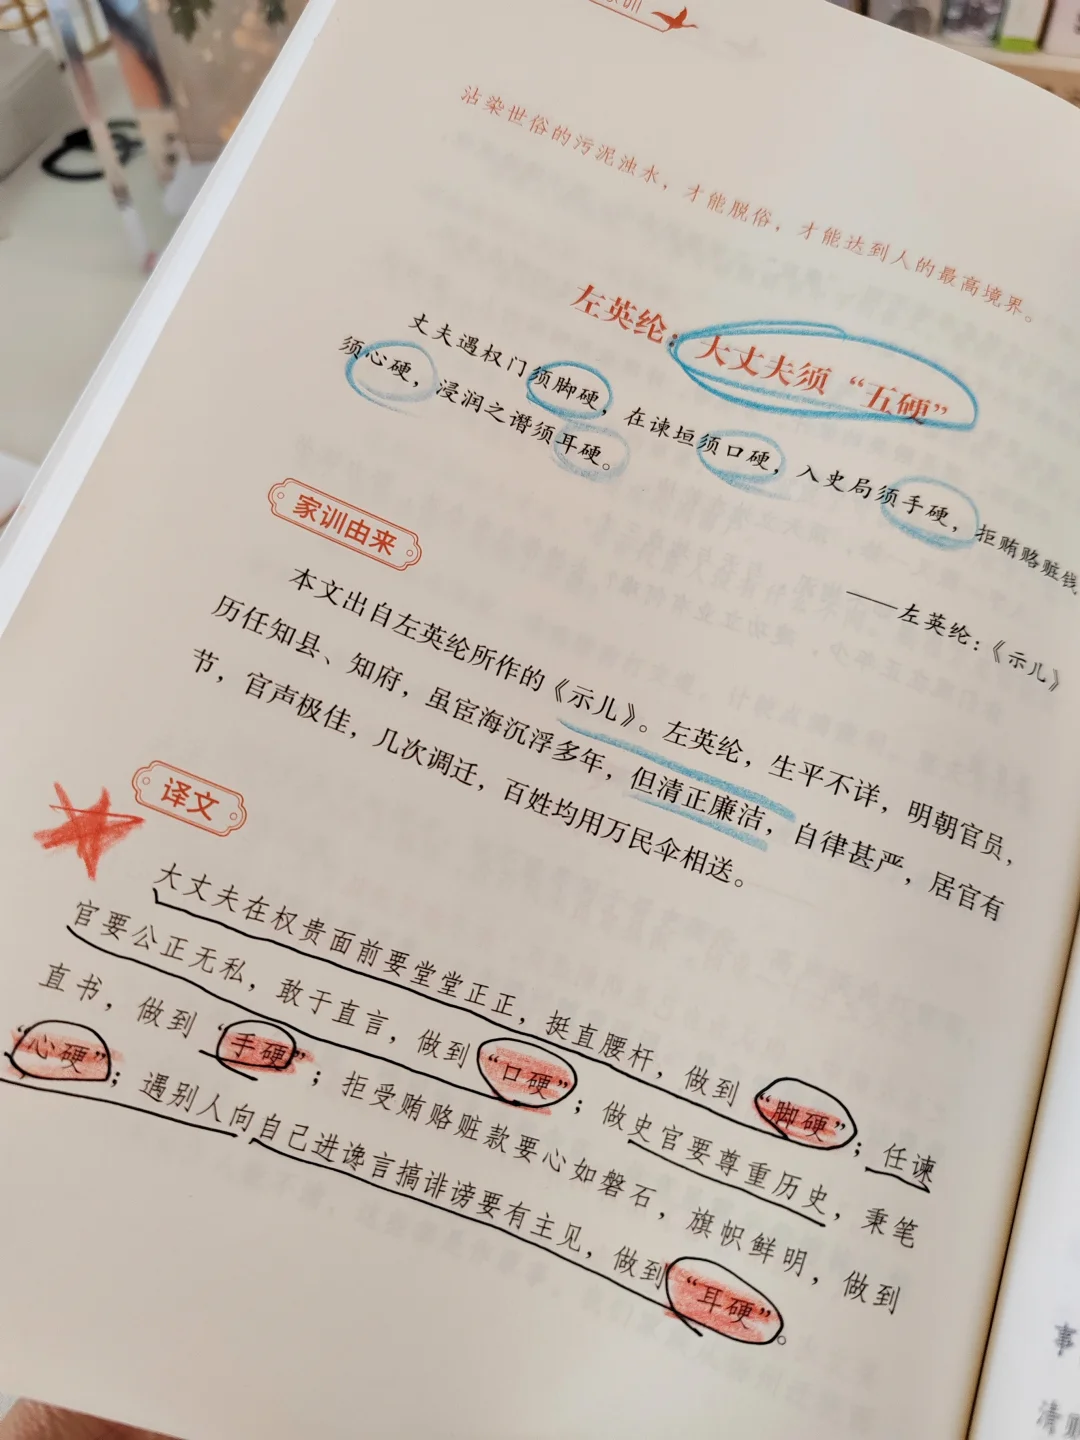 沾染世俗的污泥浊水，才能脱俗，才能达到人的最高境界。
左英纶：大丈夫须“五硬”
丈夫遇权门须脚硬，在谏垣须口硬，入史局须手硬，拒贿赂赃钱
须心硬，浸润之谮须耳硬。
——左英纶：《示儿》
家训由来
本文出自左英纶所作的《示儿》。左英纶，生平不详，明朝官员，
历任知县、知府，虽宦海沉浮多年，但清正廉洁，自律甚严，居官有
节，官声极佳，几次调迁，百姓均用万民伞相送。
译文
大丈夫在权贵面前要堂堂正正，挺直腰杆，做到“脚硬”；任谏
官要公正无私，敢于直言，做到“口硬”；做史官要尊重历史，秉笔
直书，做到“手硬”；拒受贿赂赃款要心如磐石，旗帜鲜明，做到
“心硬”；遇别人向自己进谗言搞诽谤要有主见，做到“耳硬”。
事
清